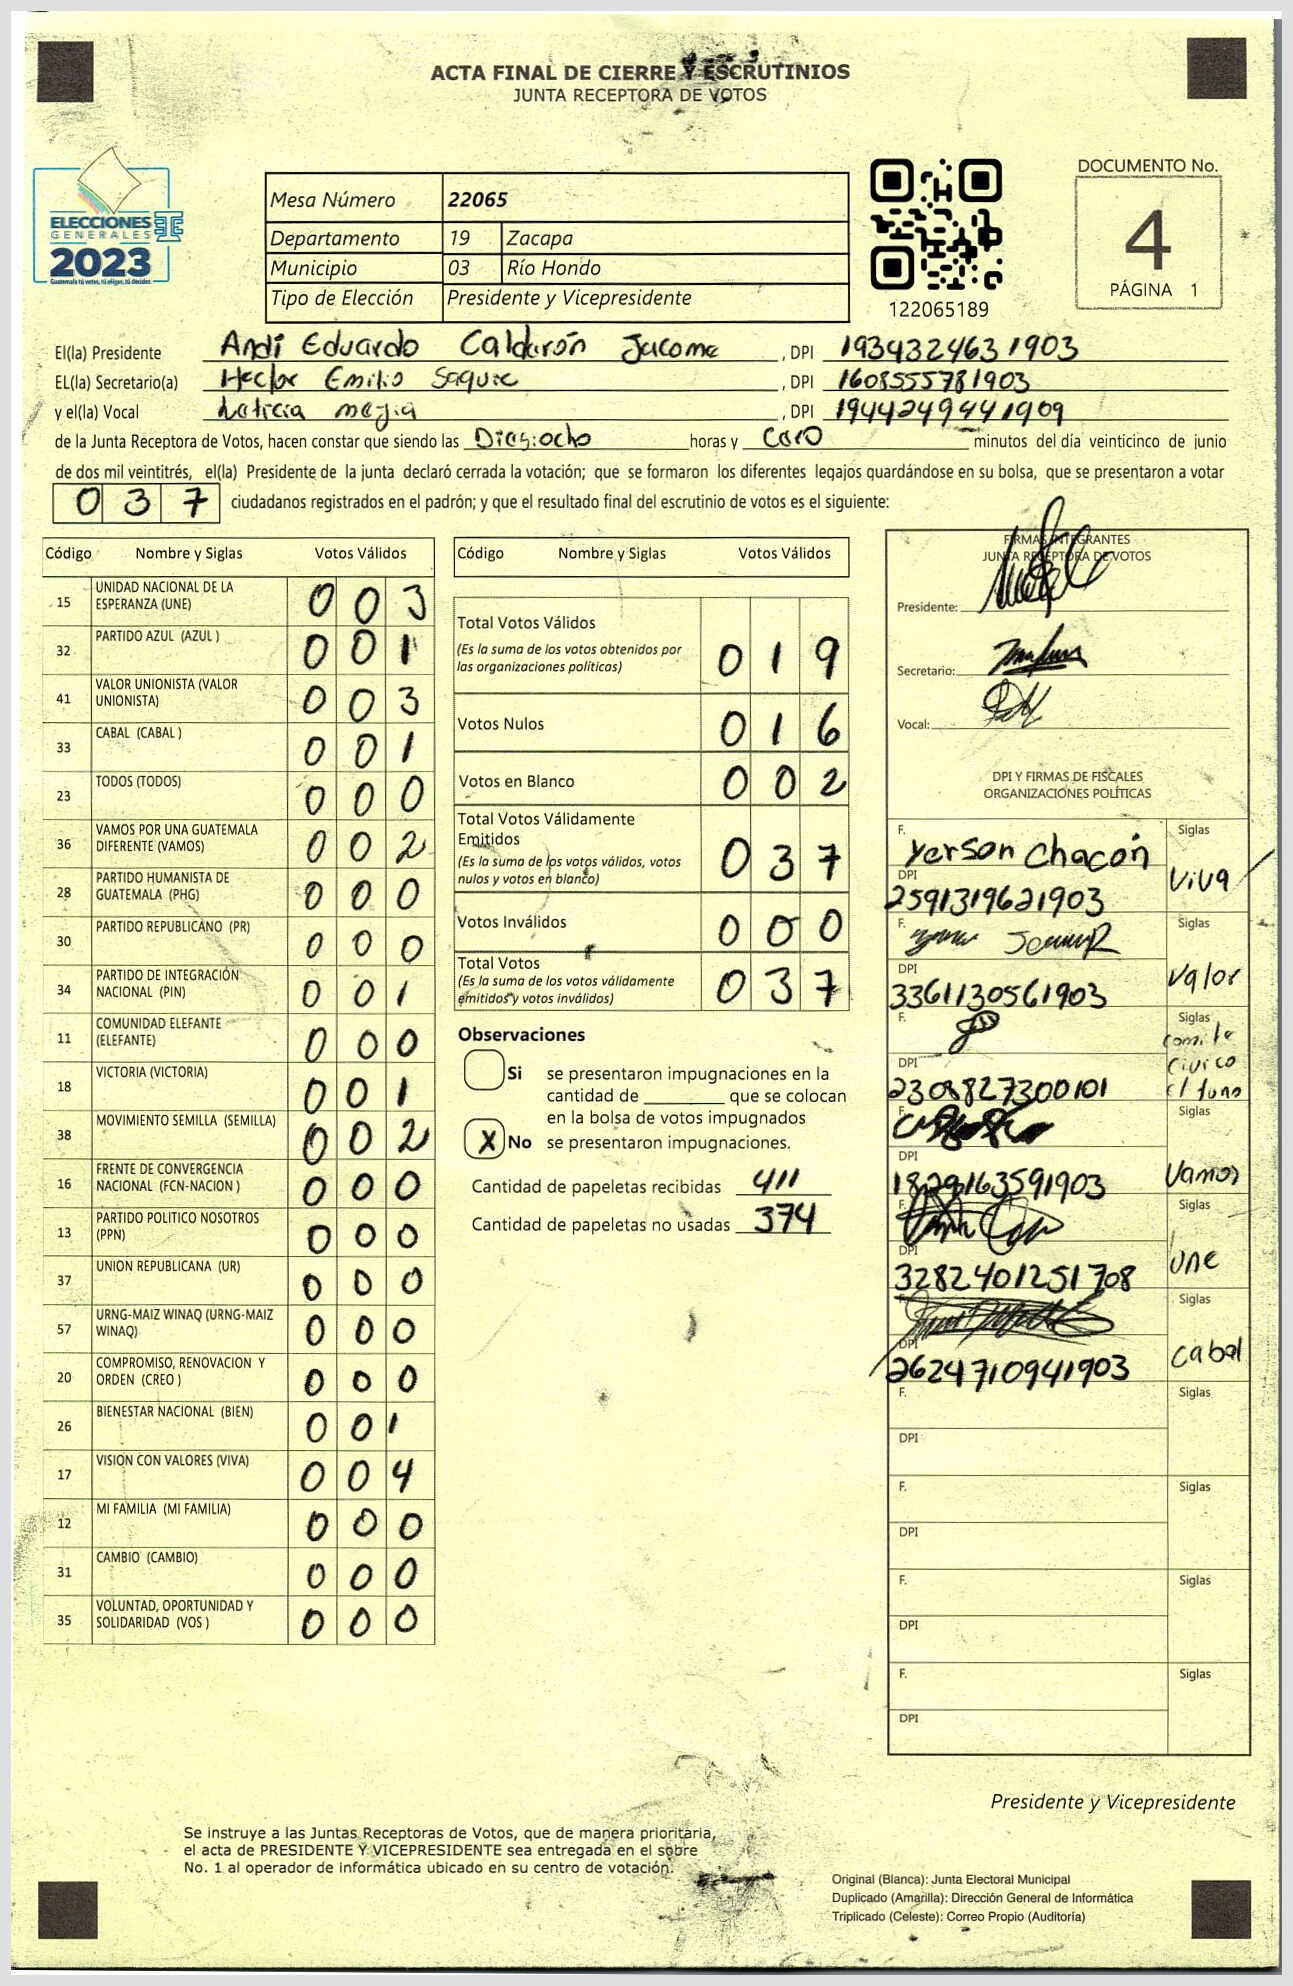 ACTA FINAL DE CIERRE Y ESCRUTINIOS
JUNTA RECEPTORA DE VOTOS
ELECCIONES
GENERALES
2023
Guatemala tú votes, tú eliges, tú decides
Mesa Número 22065
Departamento 19 Zacapa
Municipio 03 Río Hondo
Tipo de Elección Presidente y Vicepresidente
122065189
DOCUMENTO No.
4
PÁGINA 1
El(la) Presidente Andi Eduardo Calderón Jacome , DPI 1934324631903
EL(la) Secretario(a) Hector Emilio Saquic , DPI 1608555781903
y el(la) Vocal Leticia mejia , DPI 1944249441909
de la Junta Receptora de Votos, hacen constar que siendo las Diesiocho horas y Cero minutos del día veinticinco de junio
de dos mil veintitrés, el(la) Presidente de la junta declaró cerrada la votación; que se formaron los diferentes legajos guardándose en su bolsa, que se presentaron a votar
037 ciudadanos registrados en el padrón; y que el resultado final del escrutinio de votos es el siguiente:
Código Nombre y Siglas Votos Válidos
15 UNIDAD NACIONAL DE LA ESPERANZA (UNE) 0 0 3
32 PARTIDO AZUL (AZUL ) 0 0 1
41 VALOR UNIONISTA (VALOR UNIONISTA) 0 0 3
33 CABAL (CABAL ) 0 0 1
23 TODOS (TODOS) 0 0 0
36 VAMOS POR UNA GUATEMALA DIFERENTE (VAMOS) 0 0 2
28 PARTIDO HUMANISTA DE GUATEMALA (PHG) 0 0 0
30 PARTIDO REPUBLICANO (PR) 0 0 0
34 PARTIDO DE INTEGRACIÓN NACIONAL (PIN) 0 0 1
11 COMUNIDAD ELEFANTE (ELEFANTE) 0 0 0
18 VICTORIA (VICTORIA) 0 0 1
38 MOVIMIENTO SEMILLA (SEMILLA) 0 0 2
16 FRENTE DE CONVERGENCIA NACIONAL (FCN-NACION ) 0 0 0
13 PARTIDO POLITICO NOSOTROS (PPN) 0 0 0
37 UNION REPUBLICANA (UR) 0 0 0
57 URNG-MAIZ WINAQ (URNG-MAIZ WINAQ) 0 0 0
20 COMPROMISO, RENOVACION Y ORDEN (CREO ) 0 0 0
26 BIENESTAR NACIONAL (BIEN) 0 0 1
17 VISION CON VALORES (VIVA) 0 0 4
12 MI FAMILIA (MI FAMILIA) 0 0 0
31 CAMBIO (CAMBIO) 0 0 0
35 VOLUNTAD, OPORTUNIDAD Y SOLIDARIDAD (VOS ) 0 0 0
Código Nombre y Siglas Votos Válidos
Total Votos Válidos
(Es la suma de los votos obtenidos por
las organizaciones políticas) 0 1 9
Votos Nulos 0 1 6
Votos en Blanco 0 0 2
Total Votos Válidamente
Emitidos
(Es la suma de los votos válidos, votos
nulos y votos en blanco) 0 3 7
Votos Inválidos 0 0 0
Total Votos
(Es la suma de los votos válidamente
emitidos y votos inválidos) 0 3 7
Observaciones
Si se presentaron impugnaciones en la
cantidad de ________ que se colocan
en la bolsa de votos impugnados
X No se presentaron impugnaciones.
Cantidad de papeletas recibidas 411
Cantidad de papeletas no usadas 374
FIRMAS INTEGRANTES
JUNTA RECEPTORA DE VOTOS
Presidente:
Secretario:
Vocal:
DPI Y FIRMAS DE FISCALES
ORGANIZACIONES POLÍTICAS
F. Yerson Chacón Siglas
DPI 2591319621903 Viva
F. Siglas
DPI 3361130561903 Valor
F. Siglas comite
civico
DPI 2308827300101 el tuno
F. Siglas
DPI 1829163591903 Vamos
F. Siglas
DPI 3282401251708 Une
Siglas
DPI 2624710941903 Cabal
F. Siglas
DPI
F. Siglas
DPI
F. Siglas
DPI
F. Siglas
DPI
Presidente y Vicepresidente
Se instruye a las Juntas Receptoras de Votos, que de manera prioritaria,
el acta de PRESIDENTE Y VICEPRESIDENTE sea entregada en el sobre
No. 1 al operador de informática ubicado en su centro de votación.
Original (Blanca): Junta Electoral Municipal
Duplicado (Amarilla): Dirección General de Informática
Triplicado (Celeste): Correo Propio (Auditoría)